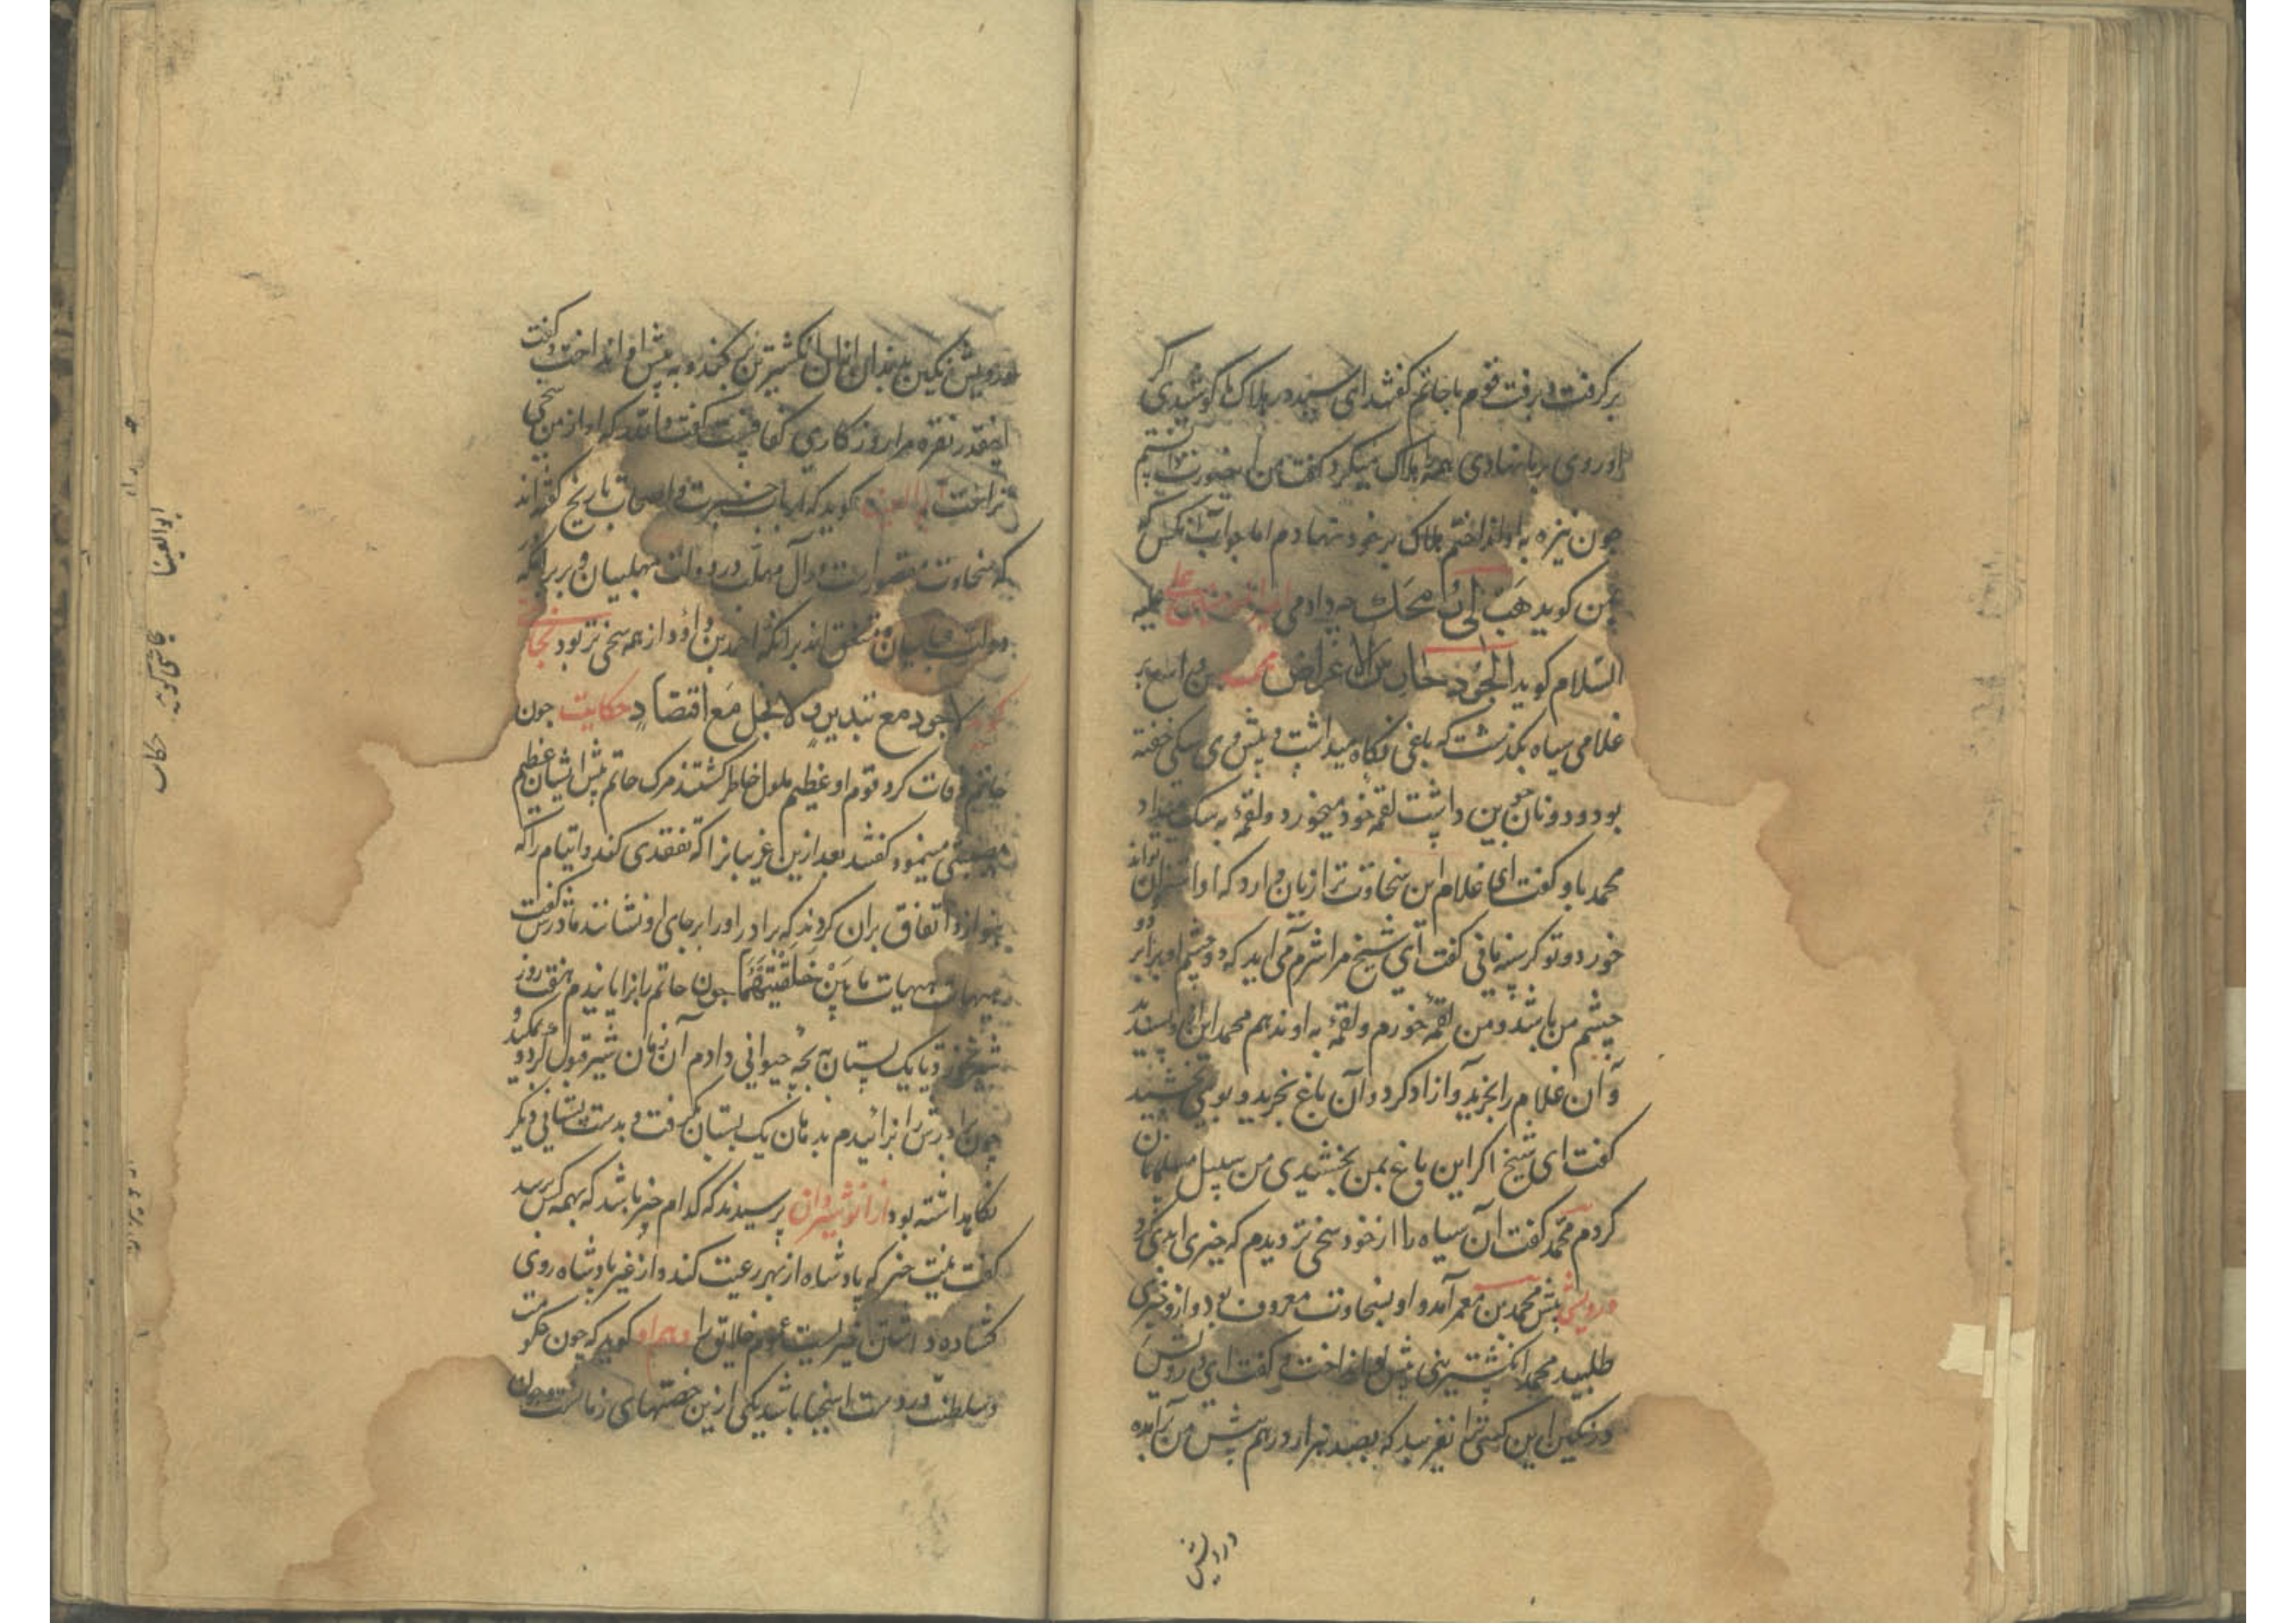 برکرفت و برفت قوم با حاتم کفتند ای سید در هلاک ما کوشیدی اکر
او روی بر ما نهادی همه را هلاک میکرد کفت من این میدانستم
چون نیزه به او انداختم هلاک بر خود نهادم اما جواب آنکس کو
بمن کوید هَب لی رُمحک چه دادمی امیرالمؤمنین علی علیه
السلام کوید الجود حارس الاعراض محمد بن واسع بر
غلامی سیاه بکذشت که باغی نکاه میداشت و پیش وی سکی خفته
بود و دو نان جوین داشت لقمهٔ خود میخورد و لقمهٔ به سک میداد
محمد با او کفت ای غلام این سخاوت ترا زیان دارد که او این نان تواند
خورد و تو کرسنه مانی کفت ای شیخ مرا شرم می اید که دو چشم او برابر دو
چشم من باشد و من لقمهٔ خورم و لقمهٔ به او ندهم محمد این از وی پسندید
و آن غلام را بخرید و آزاد کرد و آن باغ بخرید و بوی بخشید
کفت ای شیخ اکر این باغ بمن بخشیدی من سبیل مسلمانان
کردم محمد کفت آن سیاه را از خود سخی تر دیدم که چیزی ابدی کرد
درویشی پیش محمد بن معمر آمد و او بسخاوت معروف بود و ازو چیزی
طلبید محمد انکشترینی پیش او انداخت و کفت ای درویش
در نکین این کسی ترا نفریبد که بصد هزار درهم پیش من برآمده
درویش
درویش نکین بدندان ازان انکشترین برکند و به پیش او انداخت و کفت
اینقدر نقره مرا روزکاری کفافست کفت والله که او از من سخی
تراست کوید که ارباب خبرت و اصحاب تاریخ کفته اند
که سخاوت مقصورست در آل مهلب در دولت مهلبیان و بر برامکه در
دولت عباسیان و متفق اند برانکه احمد بن داود از همه سخی تر بود
کوید لا جود مع تبذیر و لا بخل مَع اقتصادٍ حکایت چون
حاتم وفات کرد قوم او عظیم ملول خاطر کشتند مرک حاتم پیش ایشان عظیم
مصیبتی مینمود کفتند بعد ازین غریبانرا که تفقدی کند و ایتام را که
بنوازد اتفاق بران کردند که برادر او را بر جای او نشانند مادرش کفت
هیهات هیهات ما بَیْن خَلقَتیَهُما چون حاتم را بزایانیدم هفت روز
شیر نخورد تا یک پستان به بچهٔ حیوانی دادم آن زمان شیر قبول کرد و می مکید و
چون برادرش را بزائیدم بدهان یک پستان بکرفت و بدست پستانی دیکر
نکاه داشته بود از انوشیروان پرسیدند که کدام خیر باشد که بهمه کس برسد
کفت نیت خیر که پادشاه از بهر رعیت کند و از غیر پادشاه روی
کشاده داشتن خیریست عموم خلایق را و هم او کوید که چون حکومت
و سلطنت در دست اسخیا باشد یکی از بن خصتهای زمانست و چون
ابو العینا
حکایت